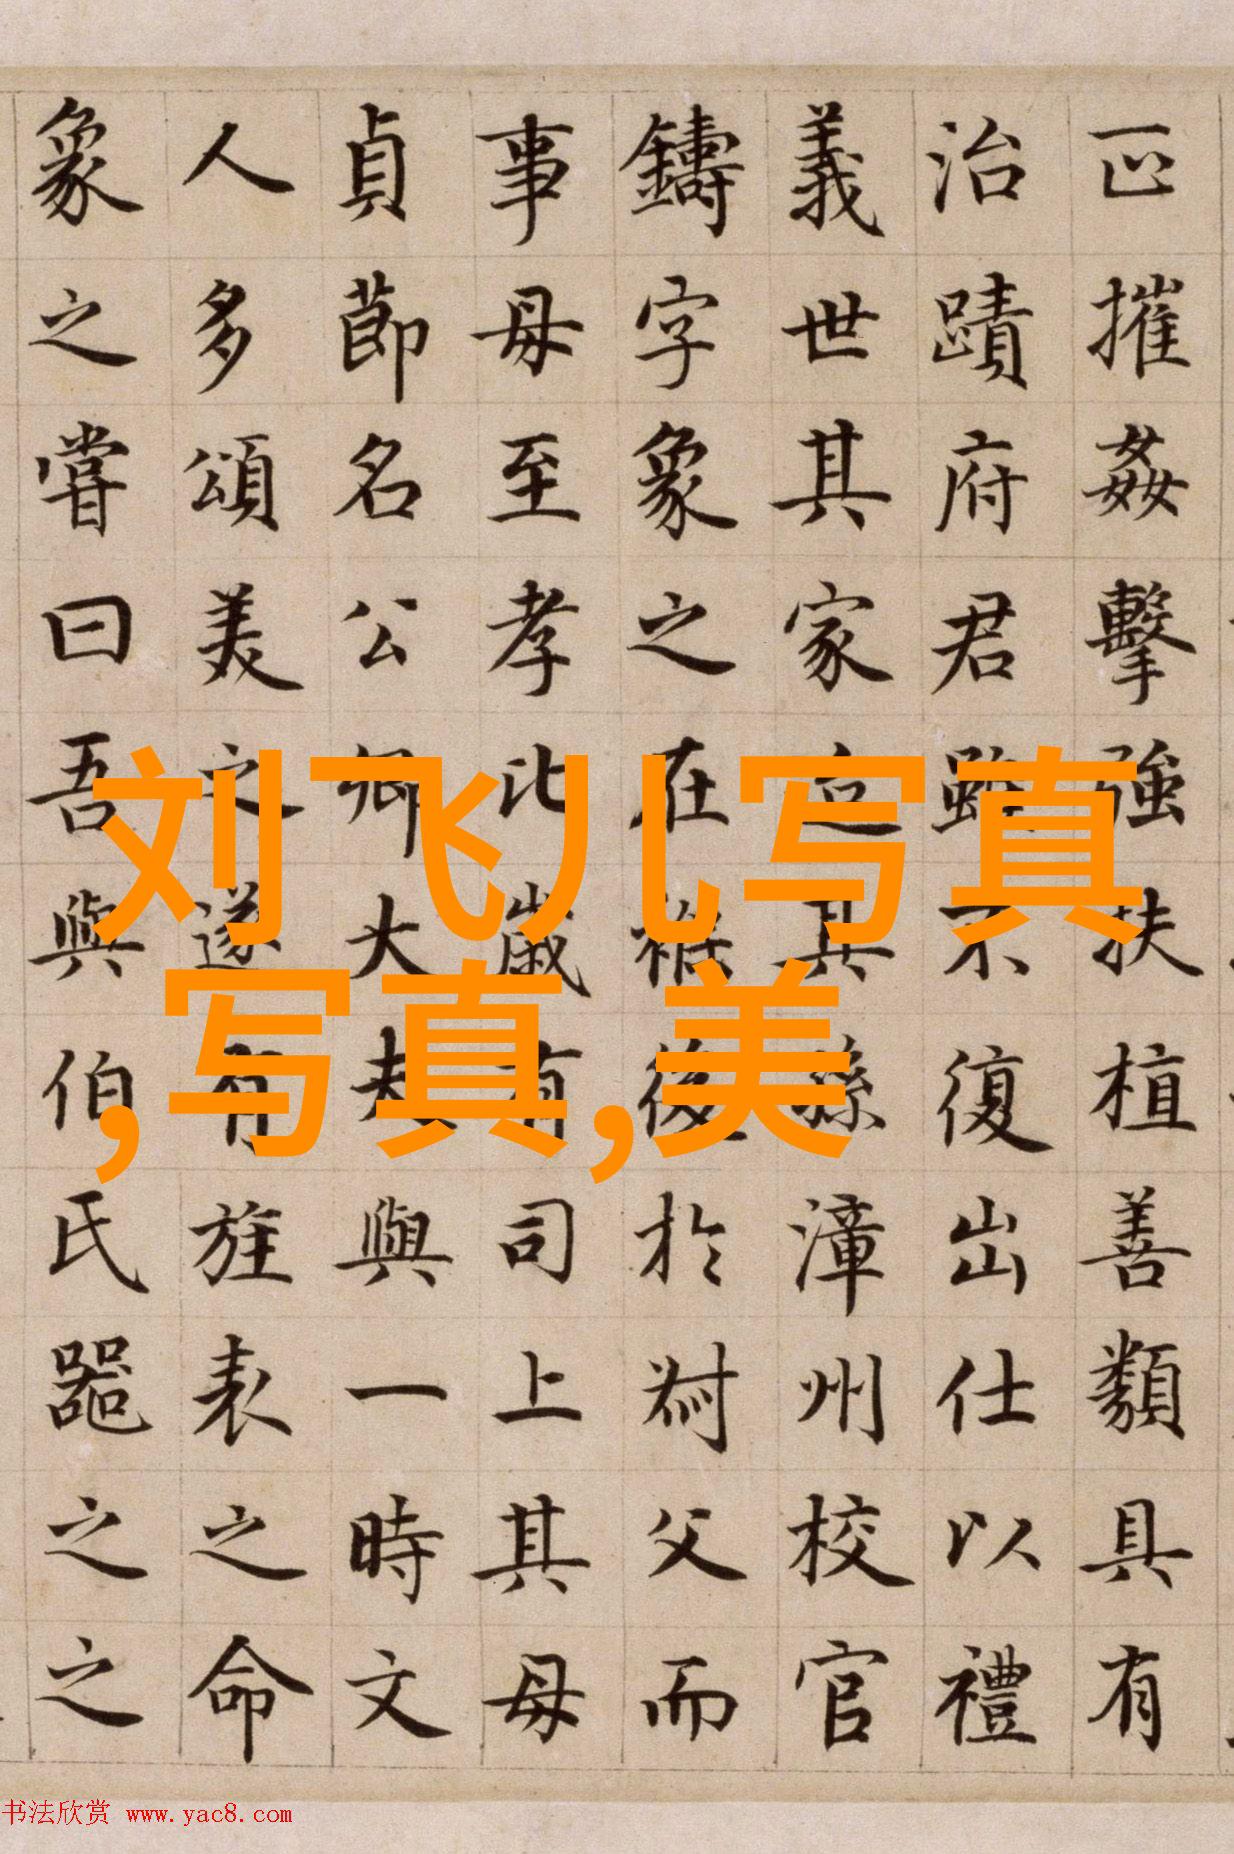 摧姦擊強扶植善類具有
治蹟府君雖不復出仕以禮
義世其家其孫漳州校官
鑄字象之在後於父而
事母至孝比歲有司上其母
貞節名公卿大夫與一時文
人多頌美之遂有旌表之命
象之嘗曰吾與伯氏器之之
刘飞儿写真
,写真,美
书法欣赏 www.yac8.com